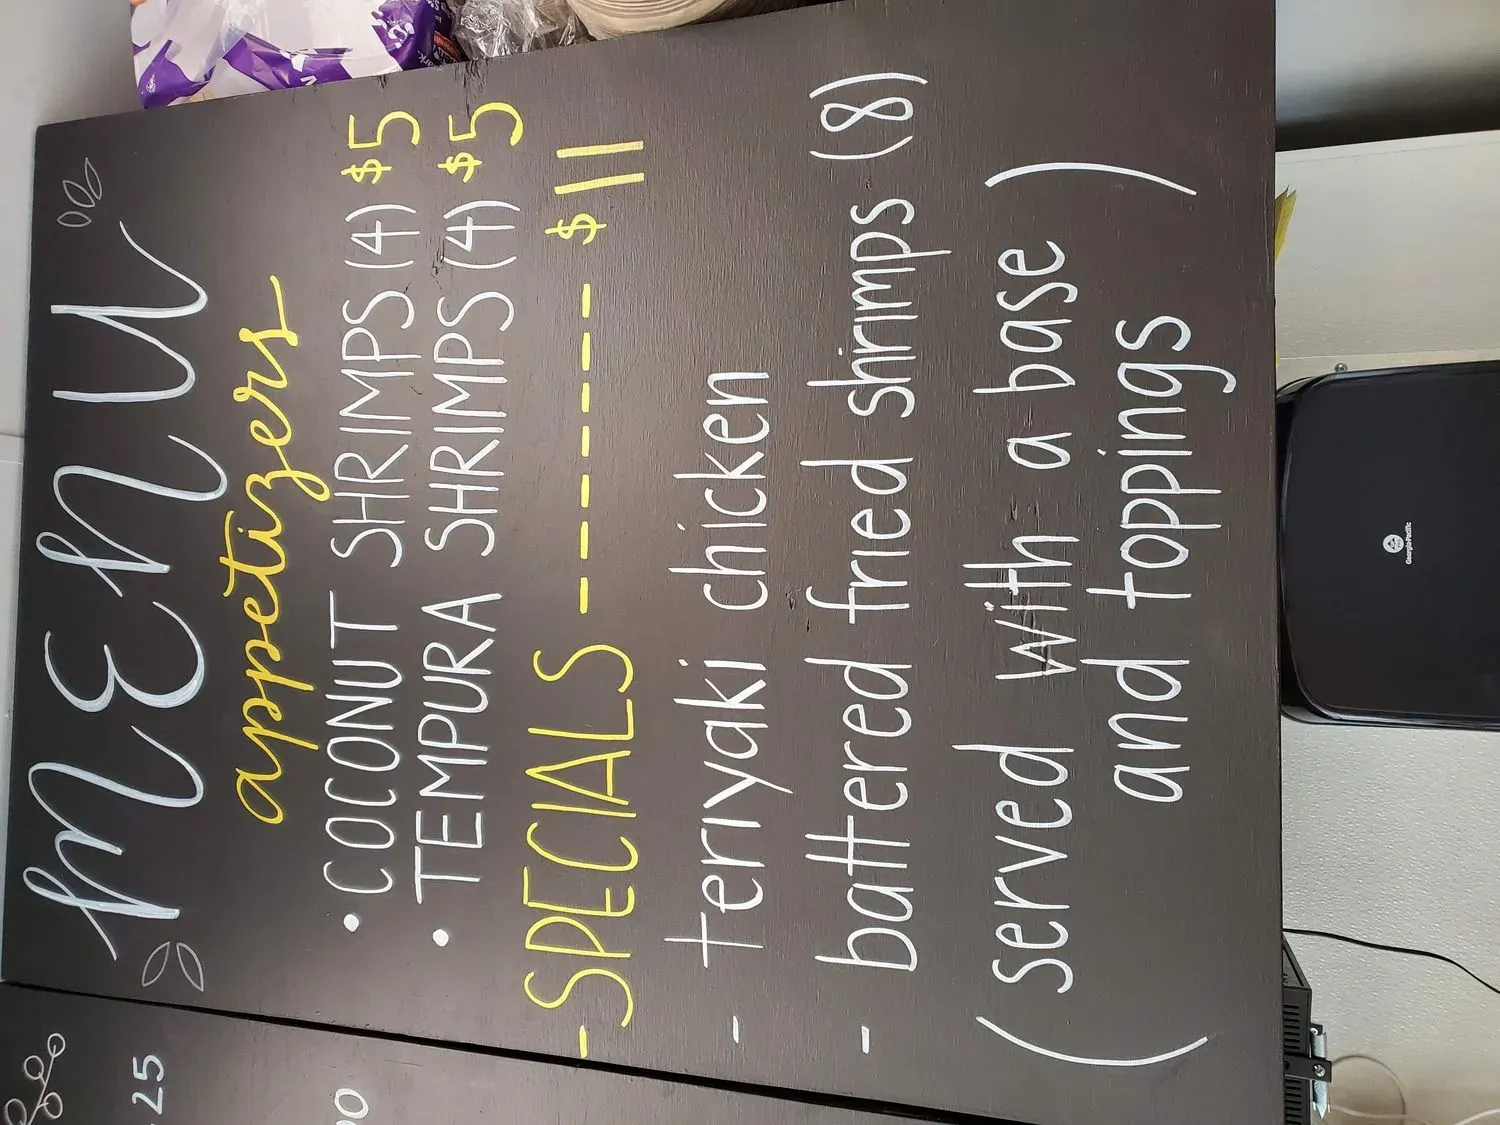 MENU
appetizers
• COCONUT SHRIMPS (4) $5
• TEMPURA SHRIMPS (4) $5
-SPECIALS --------- $11
- teriyaki chicken
- battered fried shrimps (8)
(served with a base
and toppings)
25
Georgia-Pacific